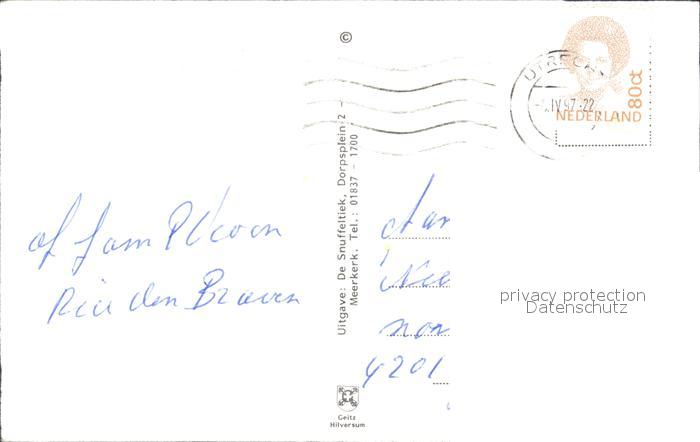 ©
UTRECH
IV 97-22
80ct
NEDERLAND
Uitgave: De Snuffeltiek, Dorpsplein 2 -
Meerkerk. Tel.: 01837 - 1700.
of fam
den
Aan
Nie
non
4201
privacy protection
Datenschutz
Geitz
Hilversum